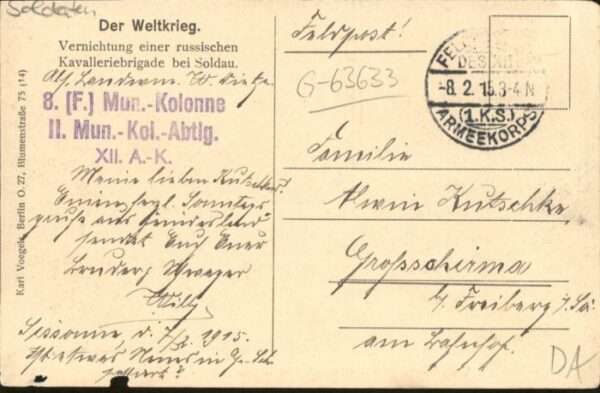 Soldaten
Der Weltkrieg.
Vernichtung einer russischen
Kavalleriebrigade bei Soldau.
Abs. Landwm. W.
8. (F.) Mun.-Kolonne
II. Mun.-Kol.-Abtlg.
XII. A.-K.
Meine lieben
Sonntags
grüße aus Feindesland
sendet Euch Euer
Bruder, Schwager
Willy
Sissonne, d. 7/II. 1915.
Ist etwas Neues in
passiert?
Karl Voegels, Berlin O. 27, Blumenstraße 75 (14)
Feldpost!
G-63633
-8. 2. 15. 3-4 N
(1. K.S.)
ARMEEKORPS
Familie
Alwin Kutschke,
Grossschirma
b/ Freiberg i/Sa.
am Bahnhof.
DA